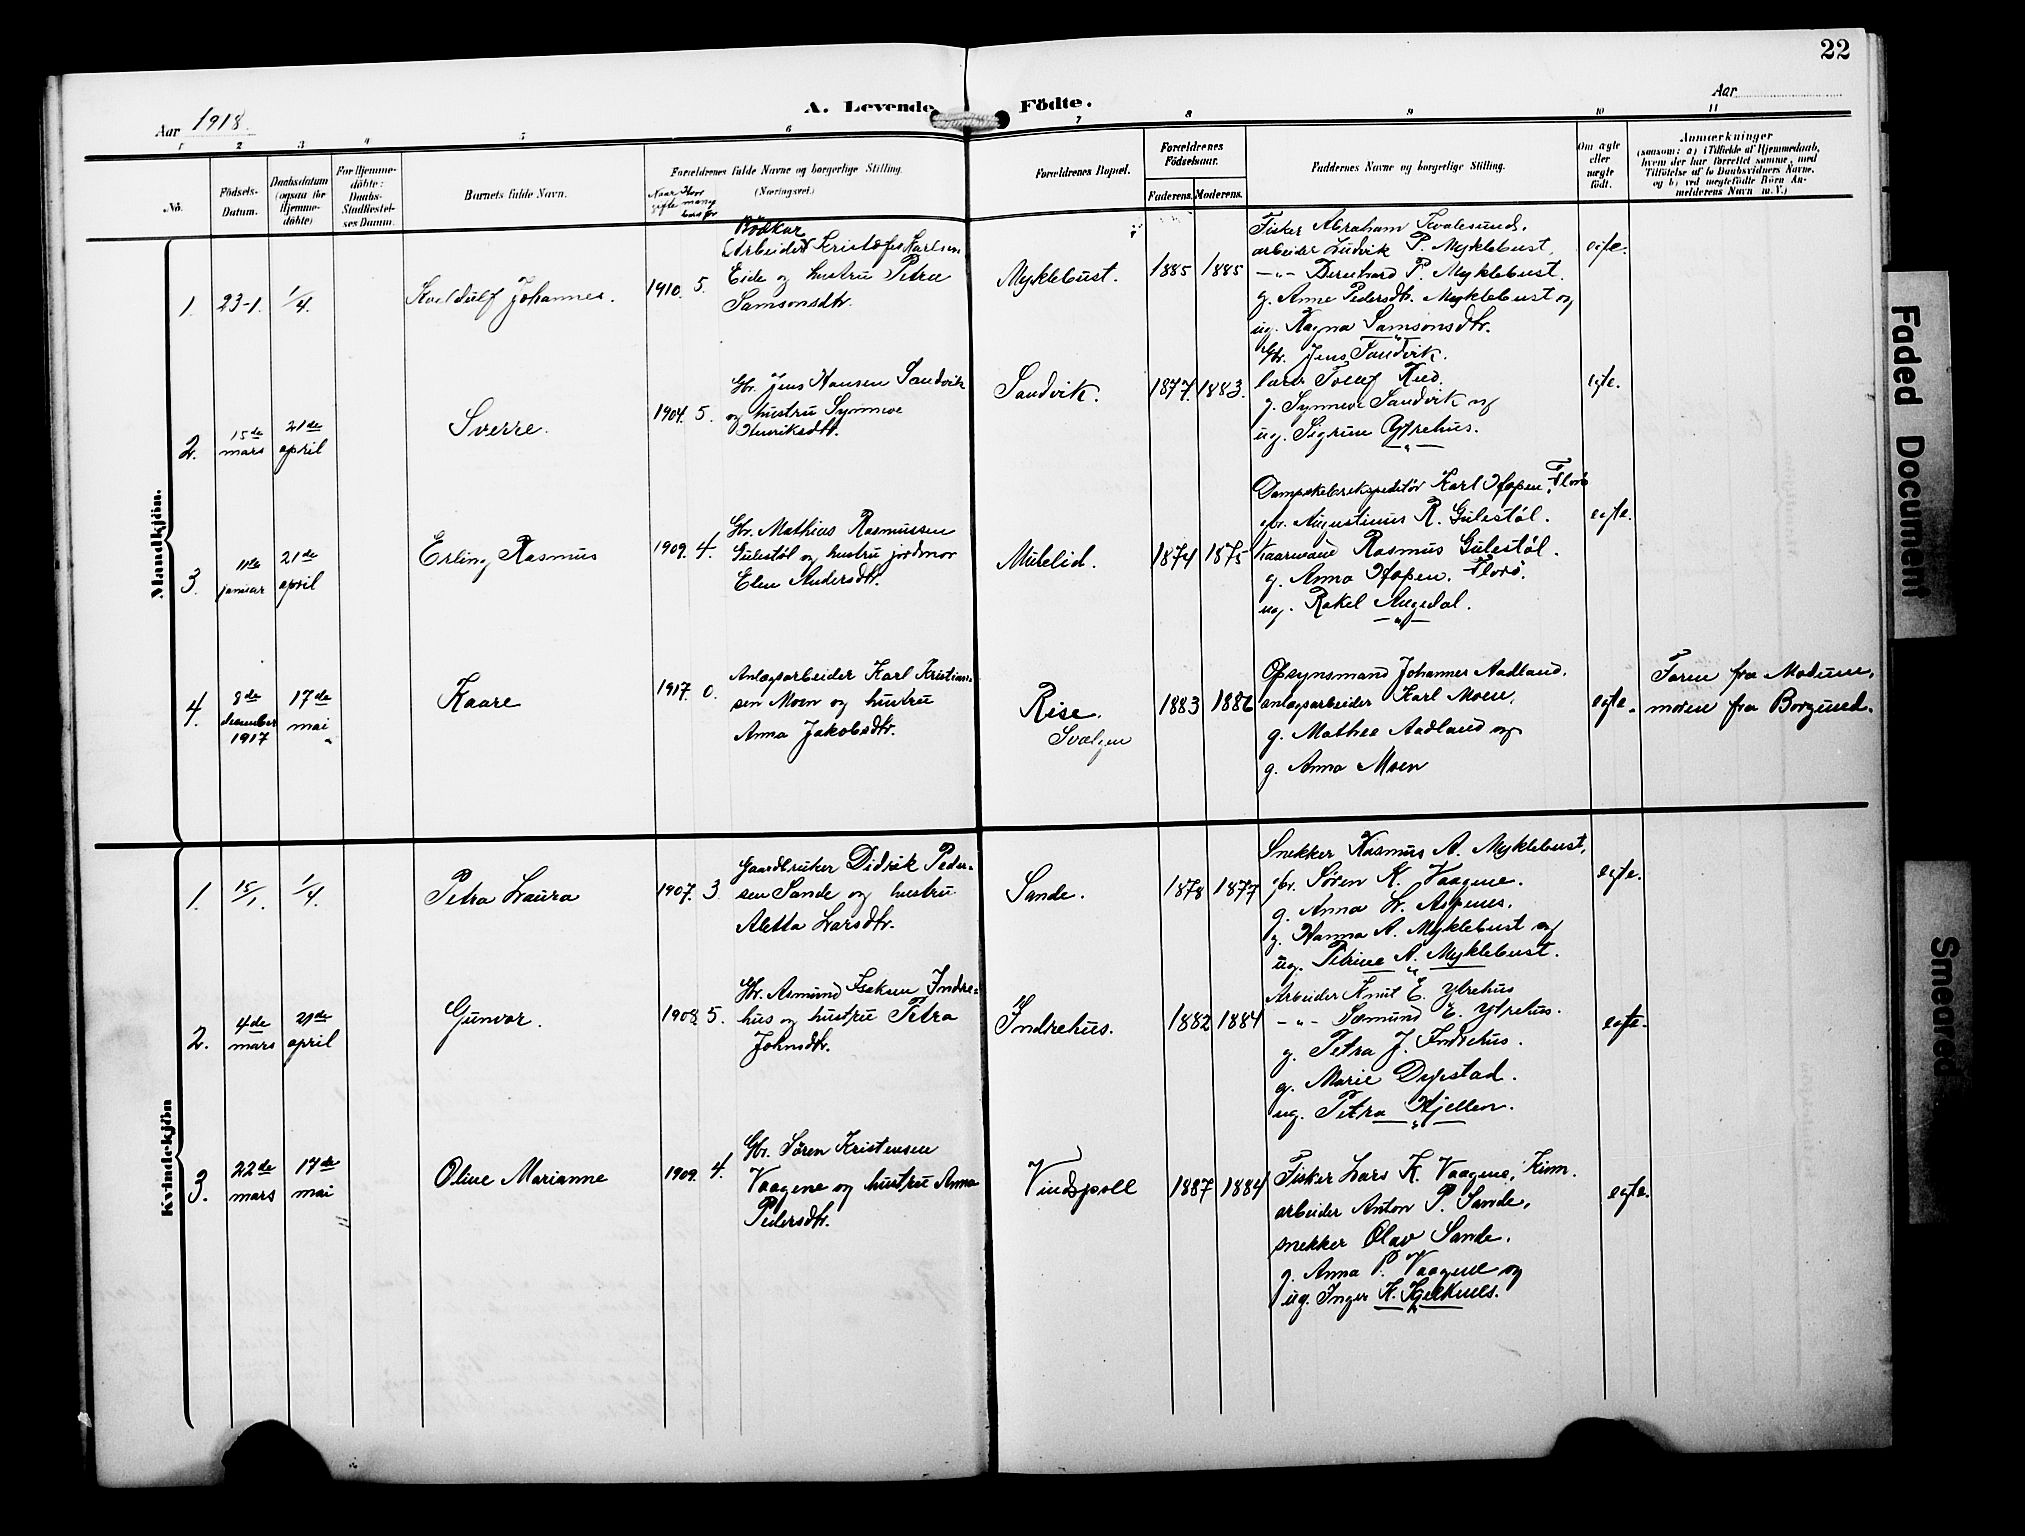 22
A. Levende Födte.
Aar 1918.
Aar
1 2 3 4 5 6 7 8 9 10 11
No.
Födsels-Datum.
Daabsdatum (ogsaa for Hjemme-döbte)
For Hjemme-döbte: Daabs-Stadfæstel-ses Datum.
Barnets fulde Navn.
Forældrenes fulde Navne og borgerlige Stilling.
(Næringsvei.)
Naar gifte
Hvor mange børn før
Forældrenes Bopæl.
Forældrenes Födselsaar.
Faderens. Moderens.
Faddernes Navne og borgerlig Stilling.
Om ægte eller uægte födt.
Anmærkninger
(saasom: a) i Tilfælde af Hjemmedaab,
hvem der har forrettet samme, med
Tilföielse af to Daabsvidners Navne,
og b) ved uægtefödte Börn An-
melderens Navn m. V.)
Mandkjön.
1. 23-1. 1/4. Kveldulf Johannes. 1910. 5.
Bödker
(Arbeider) Kristofer Karlsen
Eide og hustru Petra
Samsonsdtr.
Myklebust. 1885 1885
Fisker Abraham Kvalesund,
arbeider Ludvik P. Myklebust,
—"— Bernhard P. Myklebust.
g. Anne Pedersdtr. Myklebust og
ug. Ragna Samsonsdtr.
egte.
2. 15de mars 21de april Sverre. 1904. 5.
Gbr. Jens Hansen Sandvik
og hustru Synneve
Henriksdtr.
Sandvik. 1877. 1883.
Gbr. Jens Sandvik.
lærer Tollef Ried.
g. Synneve Sandvik og
ug. Sigrun Ytrehus.
egte.
3. 11te januar 21de april Erling Rasmus 1909. 4.
Gbr. Mathias Rasmussen
Gulestøl og hustru jordmor
Elen Andersdtr.
Mulelid. 1874 1875
Dampskibsekspeditör Karl Hopen, Florö
gbr. Augustinus R. Gulestøl.
kaarmand Rasmus Gulestøl.
g. Anna Hopen, Florö.
ug. Rakel Augedal.
egte.
4. 8de december 1917 17de mai Kaare 1917. 0.
Anlægsarbeider Karl Kristian-
sen Moen og hustru
Anna Jakobsdtr.
Rise.
Svælgen
1883 1882
Opsynsmand Johannes Aadland.
anlægsarbeider Karl Moen,
g. Mathea Aadland og
g. Anna Moen
egte.
Faren fra Modum,
moren fra Borgund.
Kvindekjön
1. 15/1. 1/4. Petra Laura 1907. 3.
Gaardbruker Didrik Peder-
sen Sande og hustru
Aletta Larsdtr.
Sande. 1878 1877
Snekker Rasmus A. Myklebust,
gbr. Søren K. Vaagene.
g. Anna L. Aspenes.
g. Hanna A. Myklebust og
ug. Petrine A. Myklebust.
egte.
2. 4de mars 21de april Gunvor. 1908. 5.
Gbr. Asmund Iseksen Indre-
hus og hustru Petra
Johnsdtr.
Indrehus. 1882 1884
Arbeider Knut E. Ytrehus
—"— Sæmund E. Ytrehus.
g. Petra J. Indrehus.
g. Marie Degestad.
ug. Petra Hjellen.
egte.
3. 22de mars 17de mai Oline Marianne 1909. 4.
Gbr. Søren Kristensen
Vaagene og hustru Anna
Pedersdtr.
Vindspoll 1887 1884
Fisker Lars K. Vaagene, Kinn.
arbeider Anton P. Sande,
snekker Olav Sande.
g. Anna P. Vaagene og
ug. Inger K. Kjelkenes.
egte.
Faded Document
Smeared